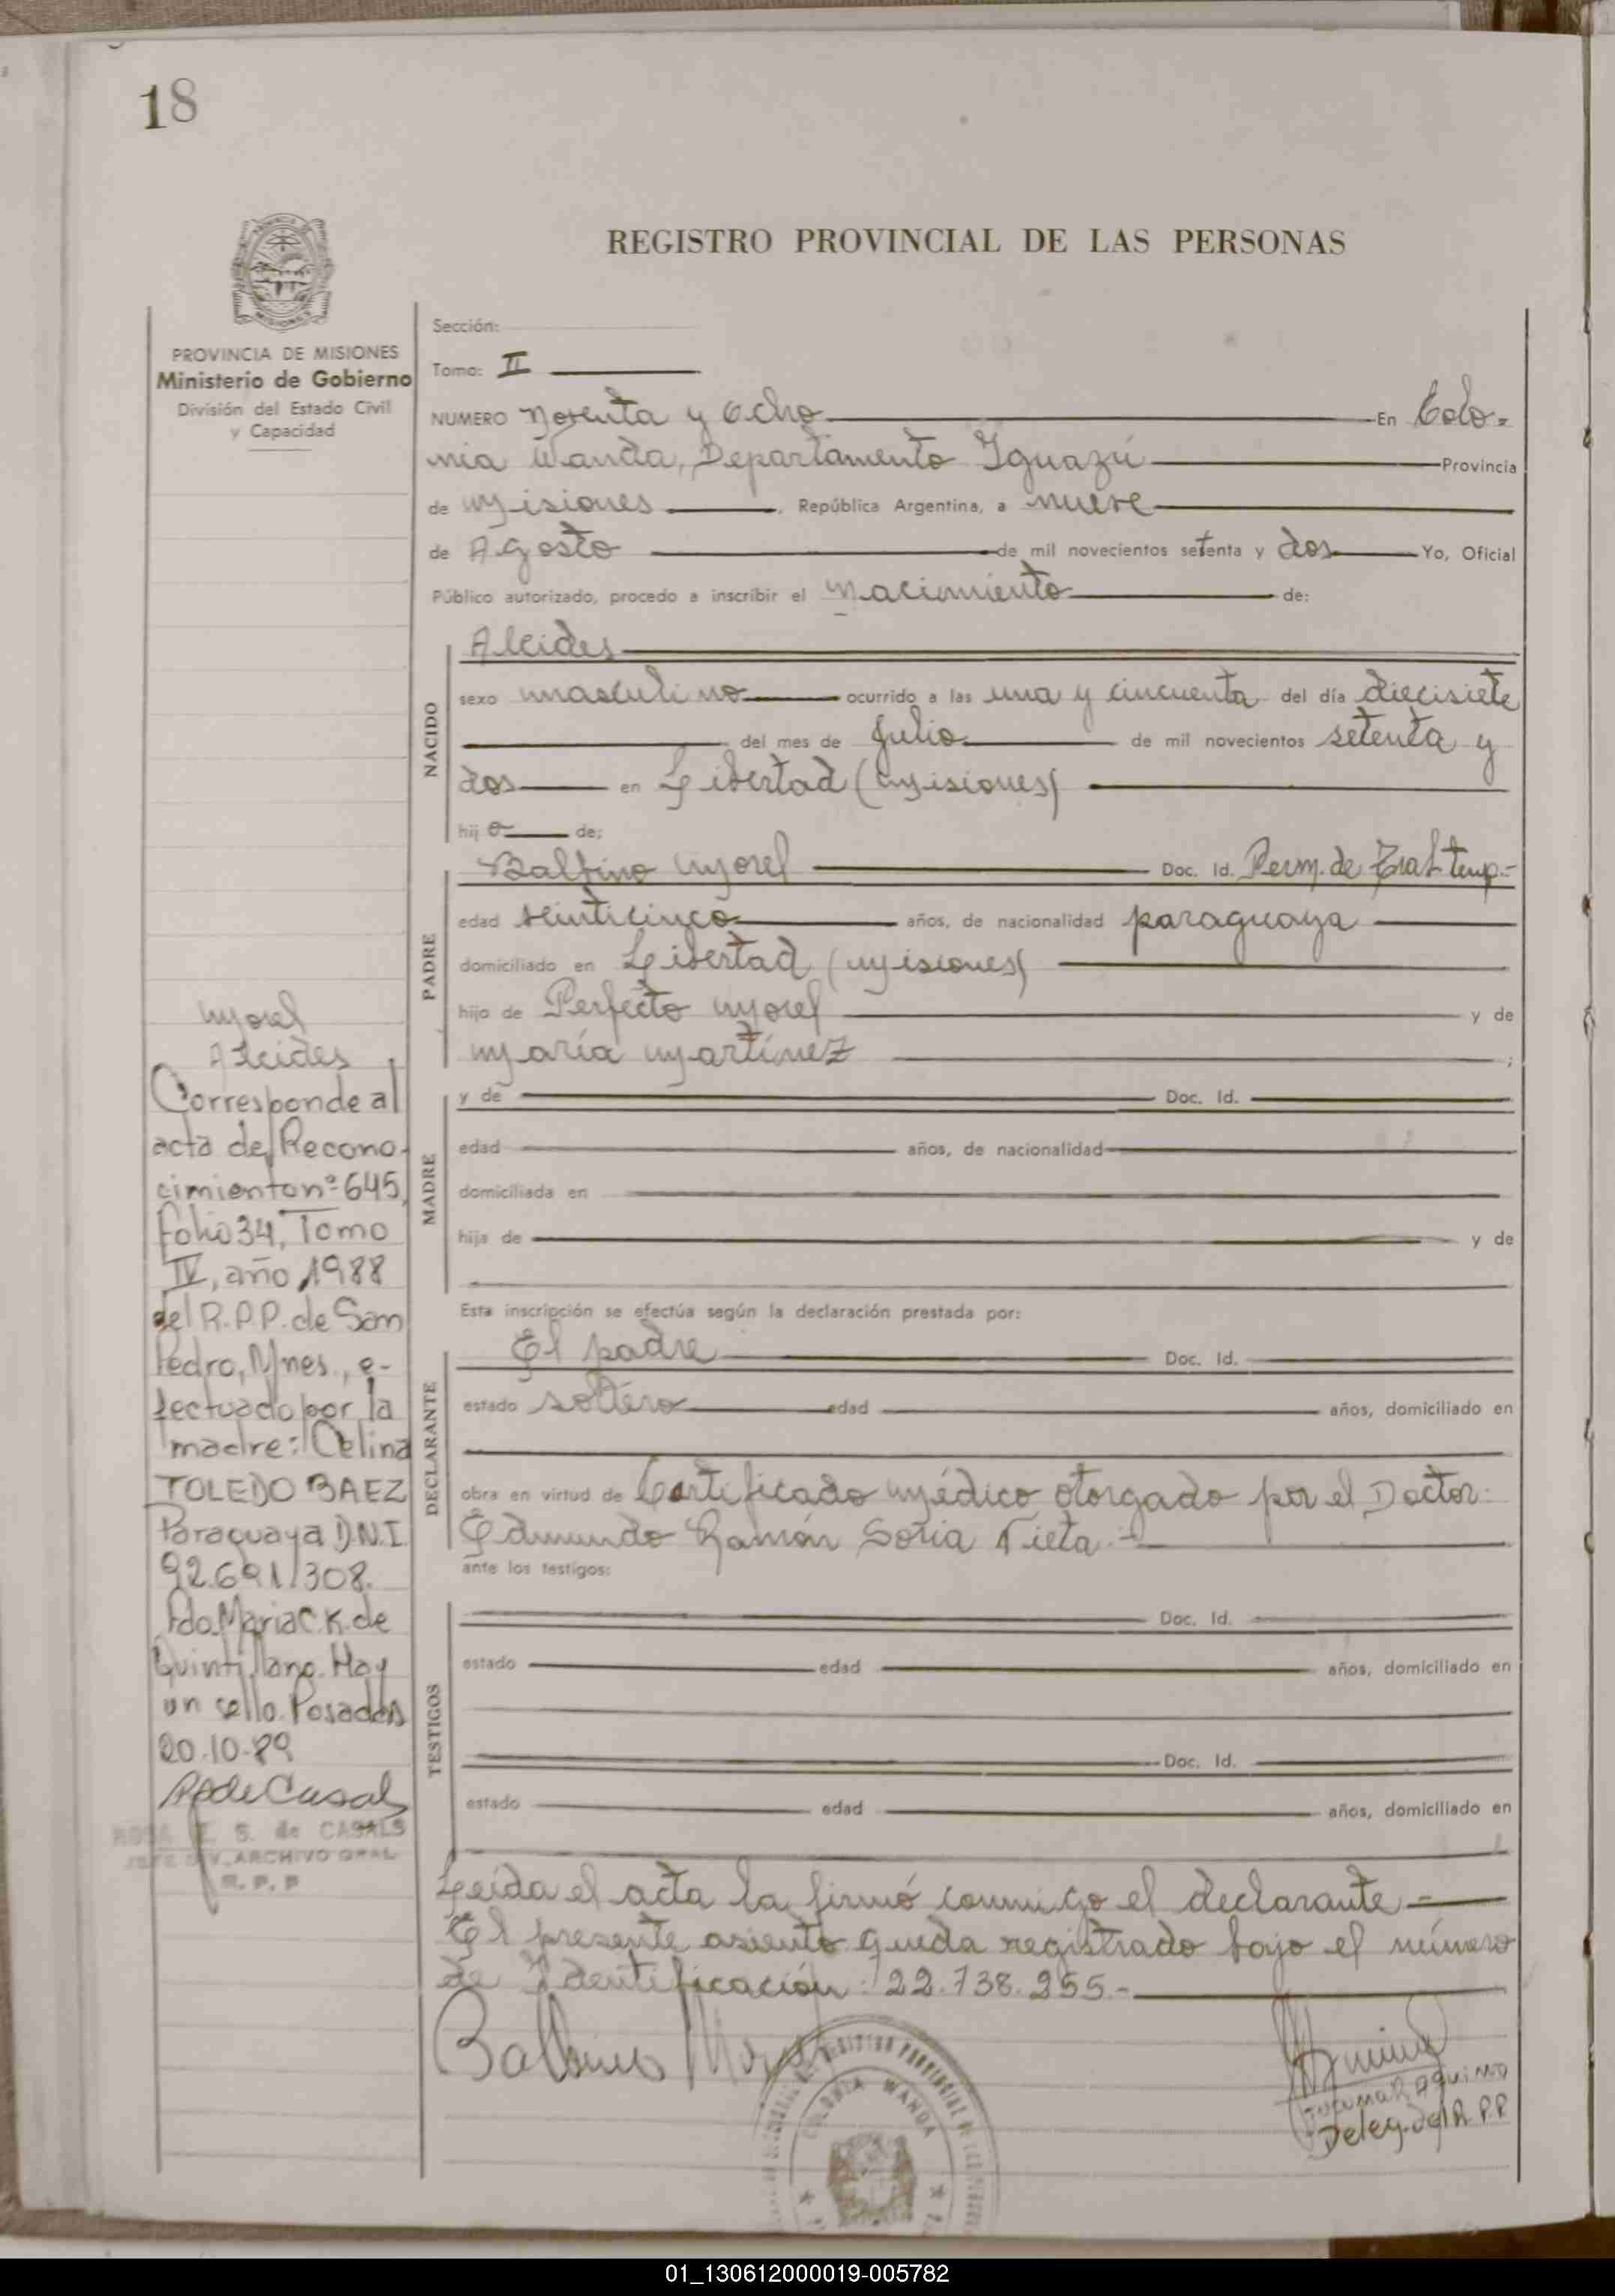 18
REGISTRO PROVINCIAL DE LAS PERSONAS
PROVINCIA DE MISIONES
Ministerio de Gobierno
División del Estado Civil
y Capacidad
Sección:
Tomo: II
NUMERO Noventa y Ocho En Colo-
nia Wanda, Departamento Iguazú Provincia
de Misiones, República Argentina, a nueve
de Agosto de mil novecientos setenta y dos Yo, Oficial
Público autorizado, procedo a inscribir el Nacimiento de:
NACIDO
Alcides
sexo masculino ocurrido a las una y cincuenta del día diecisiete
del mes de Julio de mil novecientos setenta y
dos en Libertad (Misiones)
hijo de:
PADRE
Balbino Morel Doc. Id. Perm. de Trab. temp.-
edad veinticinco años, de nacionalidad paraguaya
domiciliado en Libertad (Misiones)
hijo de Perfecto Morel y de
María Martínez ;
MADRE
y de Doc. Id.
edad años, de nacionalidad
domiciliada en
hija de y de
Esta inscripción se efectúa según la declaración prestada por:
DECLARANTE
El padre Doc. Id.
estado soltero edad años, domiciliado en
obra en virtud de Certificado Médico otorgado por el Doctor:
Edmundo Ramón Soria Vieta.-
ante los testigos:
TESTIGOS
Doc. Id.
estado edad años, domiciliado en
Doc. Id.
estado edad años, domiciliado en
Leída el acta la firmó conmigo el declarante.-
El presente asiento queda registrado bajo el número
de Identificación: 22.738.255.-
Balbino Morel
Aquino
Deleg. del R.P.P.
COLONIA WANDA
Morel
Alcides
Corresponde al
acta de Recono-
cimiento nº 645,
folio 34, Tomo
IV, año 1988
del R.P.P. de San
Pedro, Mnes., e-
fectuado por la
madre: Celina
TOLEDO BAEZ
Paraguaya D.N.I.
92.691.308.
Fdo. Maria C.K. de
Quintillano. Hay
un sello. Posadas
20-10-89
R de Casals
ROSA E. S. de CASALS
JEFE DIV. ARCHIVO GRAL
R. P. P
01_130612000019-005782